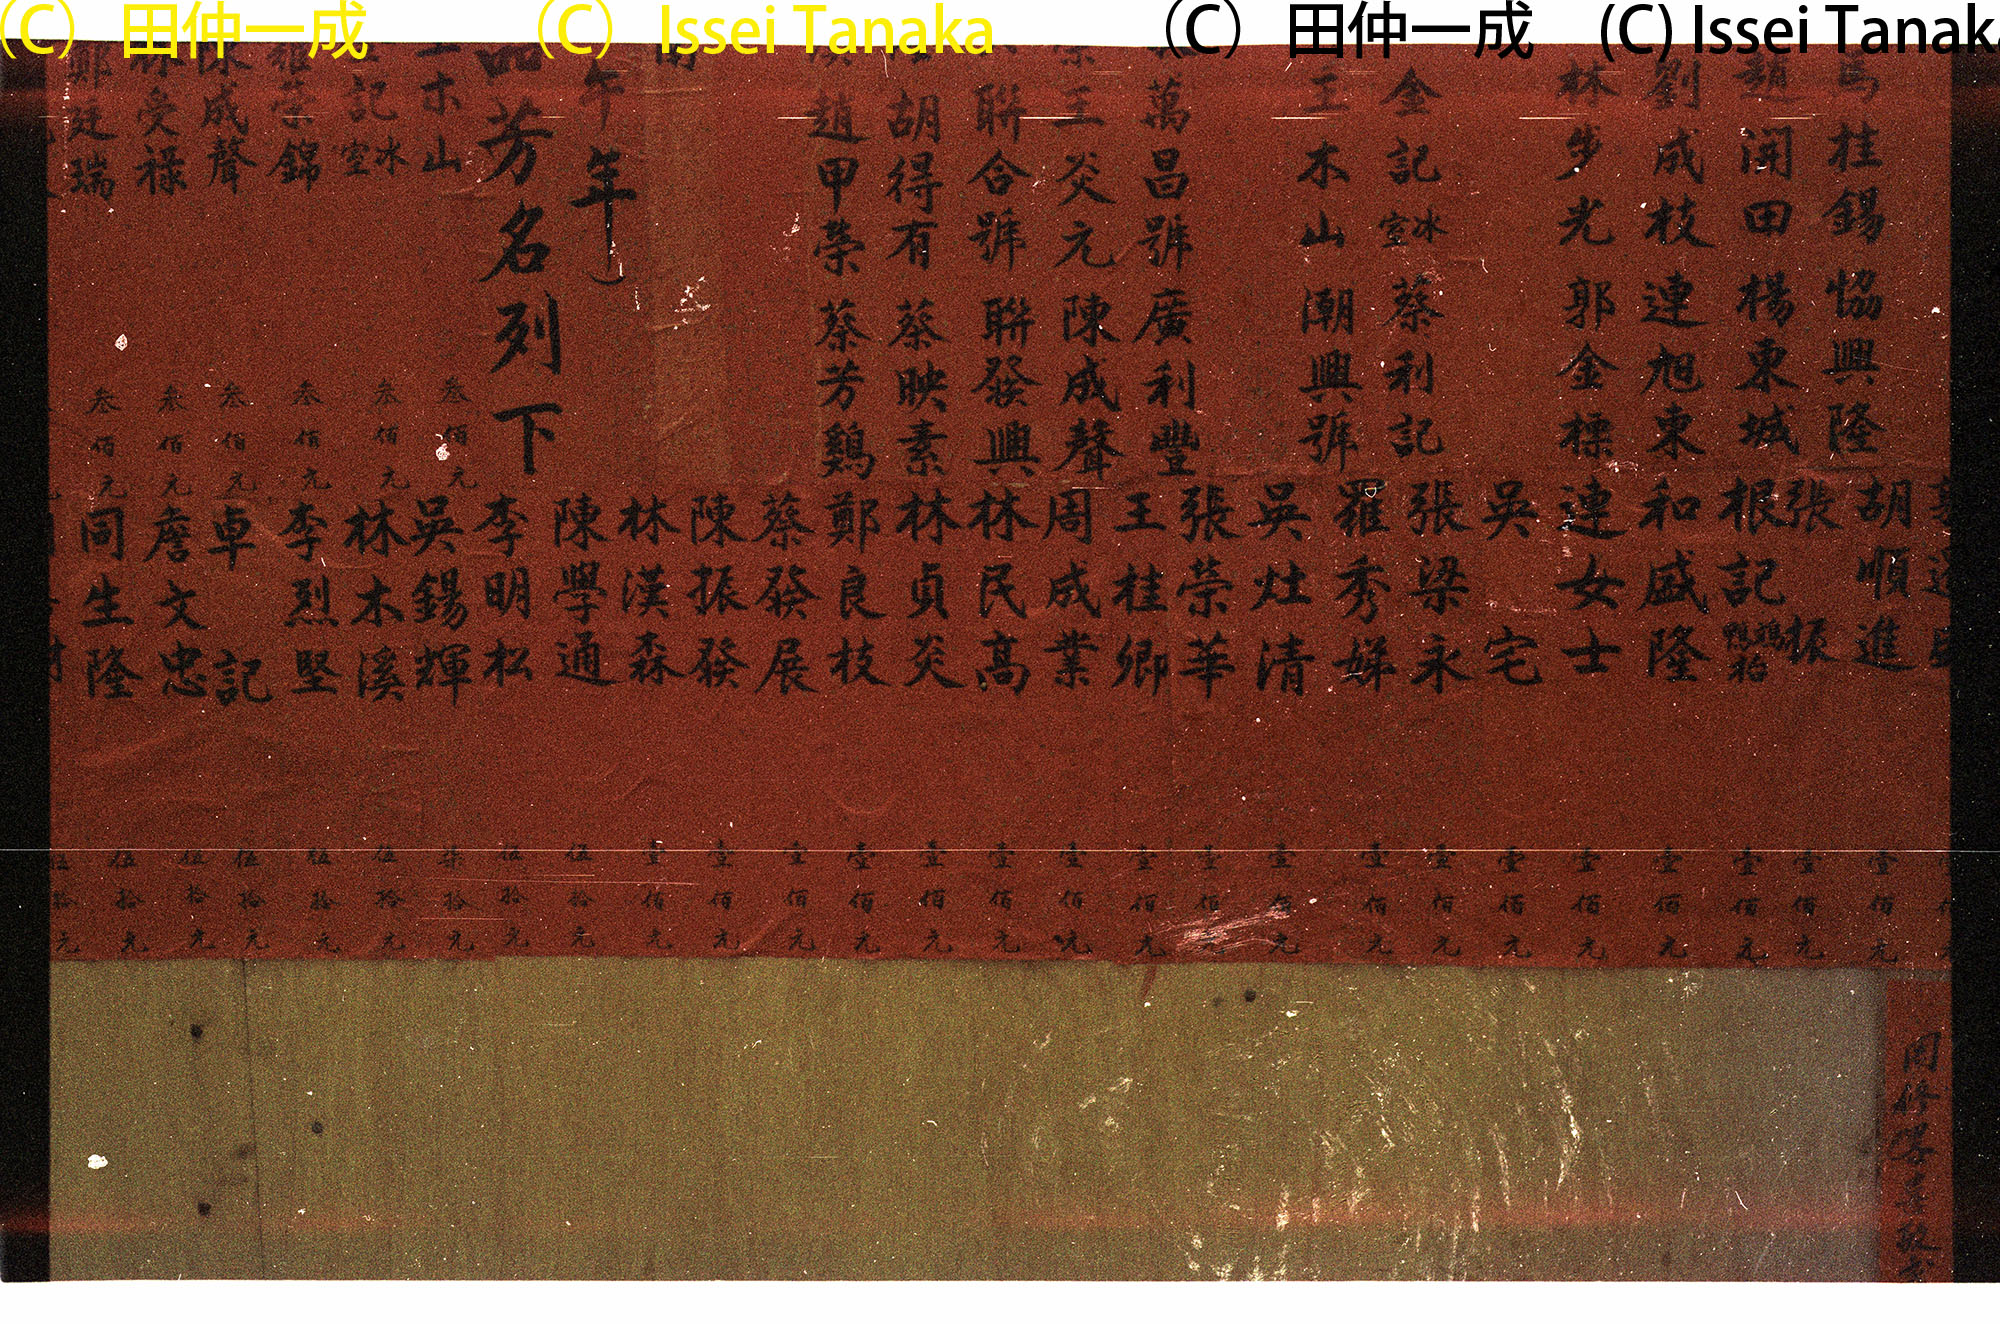 (C) 田仲一成
(C) Issei Tanaka
(C) 田仲一成
(C) Issei Tanaka
桂錫 恊興隆
趙開田 楊東城
劉成枝 連旭東
林步光 郭金標
金記冰室 蔡利記
王木山 潮興號
萬昌號 廣利豐
王炎元 陳成聲
聯合號 聯發興
胡得有 蔡映素
趙甲榮 蔡芳鷄
年年)
品芳名列下
木山 叁佰元
記冰室 叁佰元
榮錦 叁佰元
陳成聲 叁佰元
林受禄 叁佰元
鄭廷瑞 叁佰元
胡順進 壹佰元
張振 壹佰元
根記 壹佰元
和盛隆 壹佰元
連女士 壹佰元
吳宅 壹佰元
張梁永 壹佰元
羅秀娣 壹佰元
吳灶清 壹佰元
張榮華 壹佰元
王桂卿 壹佰元
周成業 壹佰元
林民髙 壹佰元
林貞炎 壹佰元
鄭良枝 壹佰元
蔡發展 壹佰元
陳振發 壹佰元
林漢森 壹佰元
陳學通 伍拾元
李明松 伍拾元
吳錫輝 柒拾元
林木溪 伍拾元
李烈堅 伍拾元
卓記 伍拾元
詹文忠 伍拾元
同生隆 伍拾元
伍拾元